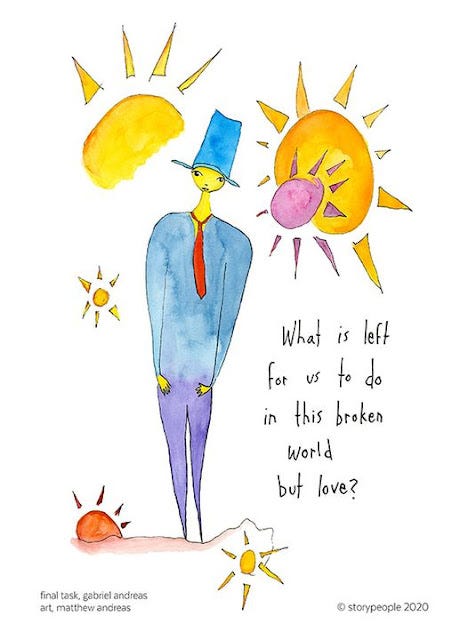 What is left
for us to do
in this broken
world
but love?
final task, gabriel andreas
art, matthew andreas
© storypeople 2020